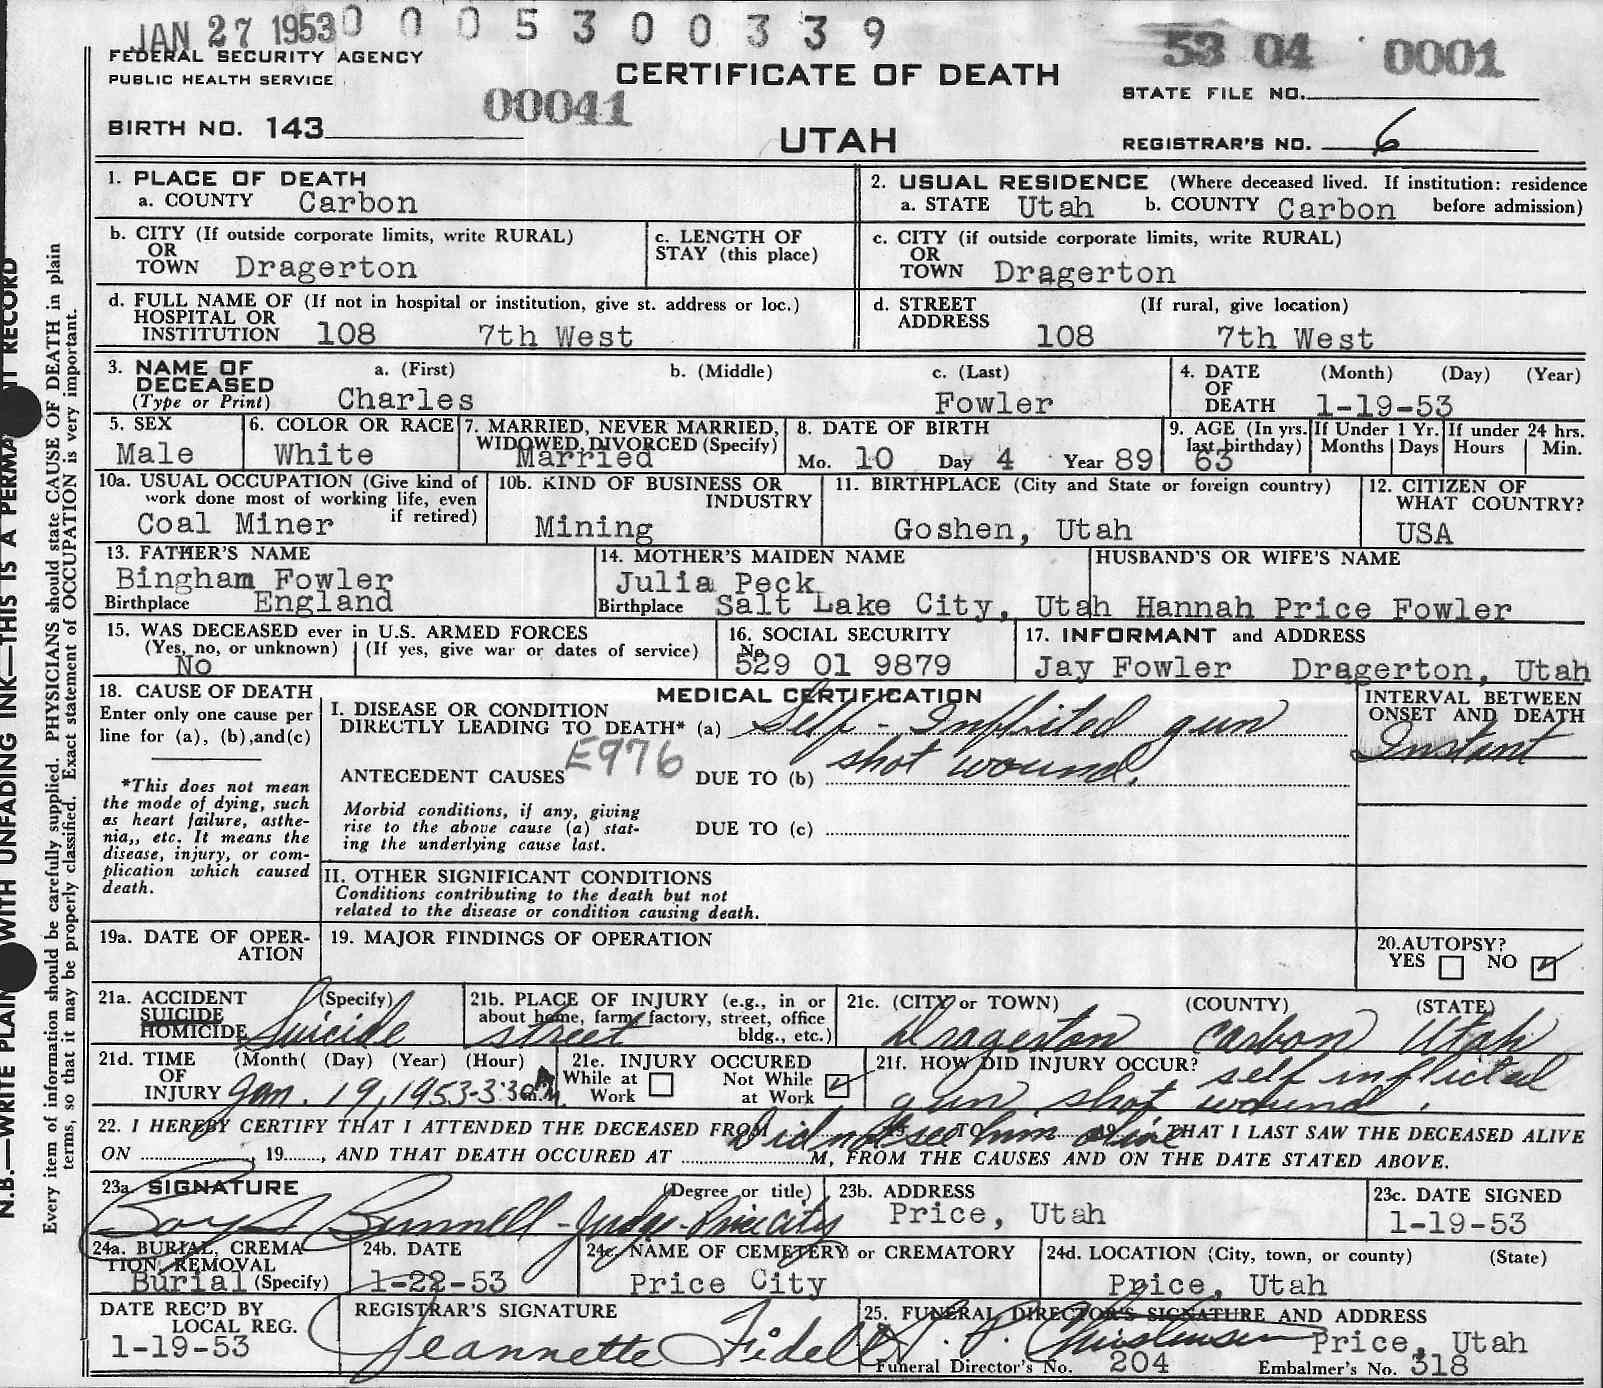 JAN 27 1953 0 0 0 5 3 0 0 3 3 9
53 04 0001
FEDERAL SECURITY AGENCY
PUBLIC HEALTH SERVICE
CERTIFICATE OF DEATH
STATE FILE NO.
00041
BIRTH NO. 143
UTAH
REGISTRAR'S NO. 6
1. PLACE OF DEATH
a. COUNTY Carbon
2. USUAL RESIDENCE (Where deceased lived. If institution: residence before admission)
a. STATE Utah b. COUNTY Carbon
b. CITY (If outside corporate limits, write RURAL)
OR
TOWN Dragerton
c. LENGTH OF
STAY (this place)
c. CITY (if outside corporate limits, write RURAL)
OR
TOWN Dragerton
d. FULL NAME OF (If not in hospital or institution, give st. address or loc.)
HOSPITAL OR
INSTITUTION 108 7th West
d. STREET (If rural, give location)
ADDRESS 108 7th West
3. NAME OF DECEASED
(Type or Print)
a. (First) b. (Middle) c. (Last)
Charles Fowler
4. DATE OF DEATH (Month) (Day) (Year)
1-19-53
5. SEX
Male
6. COLOR OR RACE
White
7. MARRIED, NEVER MARRIED,
WIDOWED, DIVORCED (Specify)
Married
8. DATE OF BIRTH
Mo. 10 Day 4 Year 89
9. AGE (In yrs. last birthday)
63
If Under 1 Yr.
Months Days
If under 24 hrs.
Hours Min.
10a. USUAL OCCUPATION (Give kind of
work done most of working life, even
if retired)
Coal Miner
10b. KIND OF BUSINESS OR
INDUSTRY
Mining
11. BIRTHPLACE (City and State or foreign country)
Goshen, Utah
12. CITIZEN OF
WHAT COUNTRY?
USA
13. FATHER'S NAME
Bingham Fowler
Birthplace England
14. MOTHER'S MAIDEN NAME
Julia Peck
Birthplace Salt Lake City, Utah
HUSBAND'S OR WIFE'S NAME
Hannah Price Fowler
15. WAS DECEASED ever in U.S. ARMED FORCES
(Yes, no, or unknown) (If yes, give war or dates of service)
No
16. SOCIAL SECURITY
No.
529 01 9879
17. INFORMANT and ADDRESS
Jay Fowler Dragerton, Utah
18. CAUSE OF DEATH
Enter only one cause per
line for (a), (b), and (c)
*This does not mean
the mode of dying, such
as heart failure, asthe-
nia,, etc. It means the
disease, injury, or com-
plication which caused
death.
MEDICAL CERTIFICATION
I. DISEASE OR CONDITION
DIRECTLY LEADING TO DEATH* (a) Self-Inflicted gun
E976
ANTECEDENT CAUSES DUE TO (b) shot wound.
Morbid conditions, if any, giving
rise to the above cause (a) stat-
ing the underlying cause last.
DUE TO (c)
INTERVAL BETWEEN
ONSET AND DEATH
Instant
II. OTHER SIGNIFICANT CONDITIONS
Conditions contributing to the death but not
related to the disease or condition causing death.
19a. DATE OF OPER-
ATION
19. MAJOR FINDINGS OF OPERATION
20. AUTOPSY?
YES NO
21a. ACCIDENT (Specify)
SUICIDE
HOMICIDE Suicide
21b. PLACE OF INJURY (e.g., in or
about home, farm, factory, street, office
bldg., etc.)
street
21c. (CITY or TOWN) (COUNTY) (STATE)
Dragerton Carbon Utah
21d. TIME (Month( (Day) (Year) (Hour)
OF
INJURY Jan. 19, 1953-3:30 A.M.
21e. INJURY OCCURED
While at Work Not While at Work
21f. HOW DID INJURY OCCUR? self inflicted
gun shot wound.
22. I HEREBY CERTIFY THAT I ATTENDED THE DECEASED FROM Did not see him alive 19 TO 19 THAT I LAST SAW THE DECEASED ALIVE
ON , 19 , AND THAT DEATH OCCURED AT M, FROM THE CAUSES AND ON THE DATE STATED ABOVE.
23a. SIGNATURE (Degree or title)
Boyd Bunnell - Judge - Price City
23b. ADDRESS
Price, Utah
23c. DATE SIGNED
1-19-53
24a. BURIAL, CREMA
TION, REMOVAL
Burial (Specify)
24b. DATE
1-22-53
24c. NAME OF CEMETERY or CREMATORY
Price City
24d. LOCATION (City, town, or county) (State)
Price, Utah
DATE REC'D BY
LOCAL REG.
1-19-53
REGISTRAR'S SIGNATURE
Jeannette Fidell
25. FUNERAL DIRECTOR'S SIGNATURE AND ADDRESS
Christensen Price, Utah
Funeral Director's No. 204 Embalmer's No. 318
N.B.—WRITE PLAIN WITH UNFADING INK—THIS IS A PERMA T RECORD
Every item of information should be carefully supplied. PHYSICIANS should state CAUSE OF DEATH in plain
terms, so that it may be properly classified. Exact statement of OCCUPATION is very important.